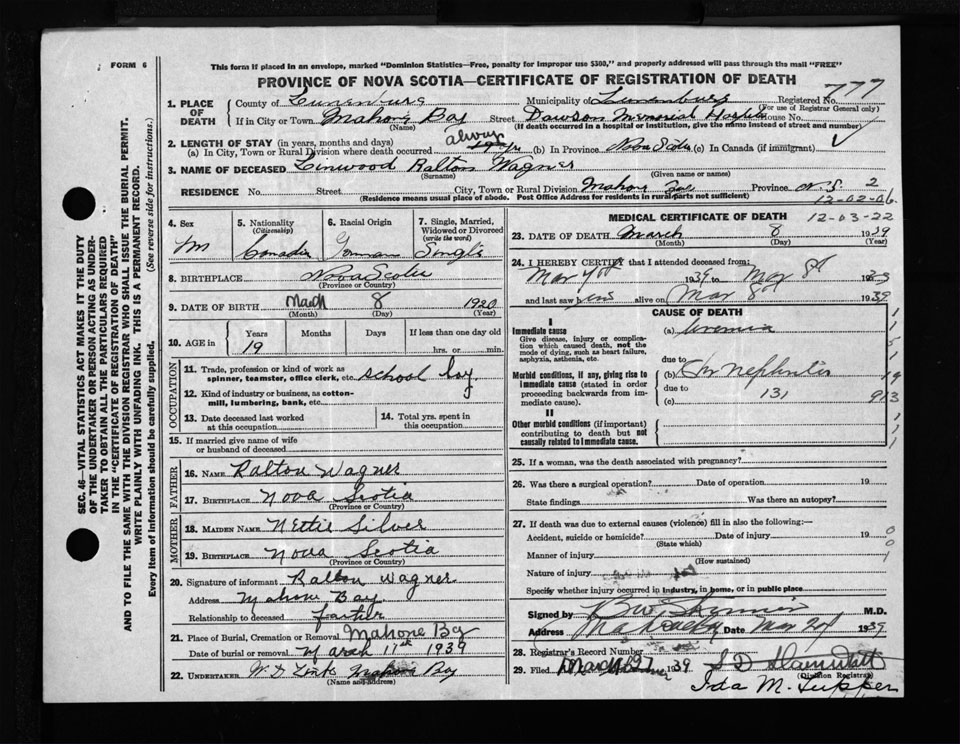 FORM 6
This form if placed in an envelope, marked "Dominion Statistics—Free, penalty for improper use $300," and properly addressed will pass through the mail "FREE"
PROVINCE OF NOVA SCOTIA—CERTIFICATE OF REGISTRATION OF DEATH
777
1. PLACE OF DEATH County of Lunenburg Municipality of Lunenburg Registered No.
(For use of Registrar General only)
If in City or Town Mahone Bay Street Dawson Memorial Hospital House No.
(Name) (If death occurred in a hospital or institution, give the name instead of street and number)
2. LENGTH OF STAY (in years, months and days) always
(a) In City, Town or Rural Division where death occurred (b) In Province Nova Scotia (c) In Canada (if immigrant)
3. NAME OF DECEASED Linwood Ralton Wagner
(Surname) (Given name or names)
RESIDENCE No. Street City, Town or Rural Division Mahone Bay Province N.S. 2
(Residence means usual place of abode. Post Office Address for residents in rural parts not sufficient) 12-02-06
12-03-22
4. Sex M
5. Nationality (Citizenship) Canadian
6. Racial Origin German
7. Single, Married, Widowed or Divorced (write the word) Single
8. BIRTHPLACE Nova Scotia
(Province or Country)
9. DATE OF BIRTH March 8 1920
(Month) (Day) (Year)
10. AGE in Years Months Days If less than one day old
19 hrs. or min.
OCCUPATION
11. Trade, profession or kind of work as spinner, teamster, office clerk, etc. school boy
12. Kind of industry or business, as cotton-mill, lumbering, bank, etc.
13. Date deceased last worked at this occupation
14. Total yrs. spent in this occupation
15. If married give name of wife or husband of deceased
FATHER
16. NAME Ralton Wagner
17. BIRTHPLACE Nova Scotia
(Province or Country)
MOTHER
18. MAIDEN NAME Nettie Silver
19. BIRTHPLACE Nova Scotia
(Province or Country)
20. Signature of informant Ralton Wagner
Address Mahone Bay
Relationship to deceased father
21. Place of Burial, Cremation or Removal Mahone Bay
Date of burial or removal March 11th 1939
22. UNDERTAKER W D Zinck Mahone Bay
(Name and address)
MEDICAL CERTIFICATE OF DEATH
23. DATE OF DEATH March 8 1939
(Month) (Day) (Year)
24. I HEREBY CERTIFY that I attended deceased from:
Mar 1939 to Mar 8th 1939
and last saw him alive on Mar 8 1939
CAUSE OF DEATH
I
Immediate cause (a) Uremia
Give disease, injury or complication which caused death, not the mode of dying, such as heart failure, asphyxia, asthenia, etc.
due to
Morbid conditions, if any, giving rise to immediate cause (stated in order proceeding backwards from immediate cause). (b) Chr Nephritis
due to
(c) 131
II
Other morbid conditions (if important) contributing to death but not causally related to immediate cause.
25. If a woman, was the death associated with pregnancy?
26. Was there a surgical operation? Date of operation 19
State findings Was there an autopsy?
27. If death was due to external causes (violence) fill in also the following:—
Accident, suicide or homicide? Date of injury 19
(State which)
Manner of injury
(How sustained)
Nature of injury
Specify whether injury occurred in industry, in home, or in public place
Signed by M.D.
Address Date Mar 20 1939
28. Registrar's Record Number
29. Filed March 1939
(Division Registrar)
Ida M. Tupper
SEC. 46—VITAL STATISTICS ACT MAKES IT THE DUTY
OF THE UNDERTAKER OR PERSON ACTING AS UNDER-
TAKER TO OBTAIN ALL THE PARTICULARS REQUIRED
IN THE "CERTIFICATE OF REGISTRATION OF DEATH"
AND TO FILE THE SAME WITH THE DIVISION REGISTRAR WHO SHALL ISSUE THE BURIAL PERMIT.
WRITE PLAINLY WITH UNFADING INK. THIS IS A PERMANENT RECORD.
Every item of information should be carefully supplied. (See reverse side for instructions.)